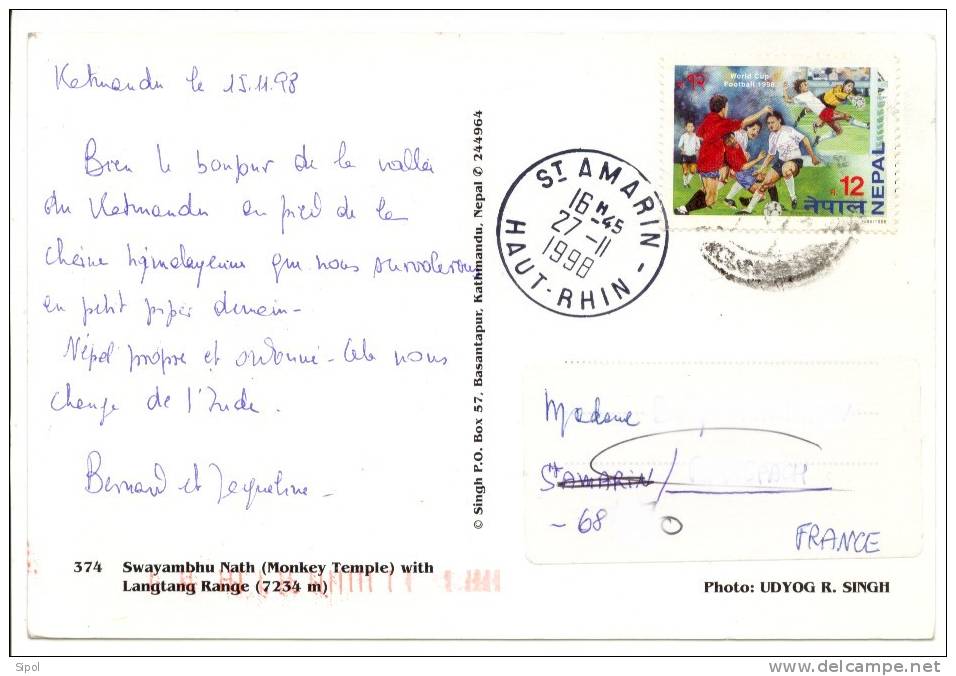 Katmandu le 15.11.98
Bien le bonjour de la vallée
du Katmandu au pied de la
chaine himalayenne que nous survolerons
en petit piper demain -
Népal propre et ordonné - Cela nous
change de l'Inde.
Bernard et Jacqueline -
374 Swayambhu Nath (Monkey Temple) with
Langtang Range (7234 m)
© Singh P.O. Box 57, Basantapur, Kathmandu, Nepal © 244964
ST AMARIN -
16 H -45
27 -11
1998
HAUT-RHIN
World Cup
Football 1998
रु.१२
रु. 12
नेपाल
NEPAL
Madame
St AMARIN /
- 68
FRANCE
Photo: UDYOG R. SINGH
Sipol
www.delcampe.net